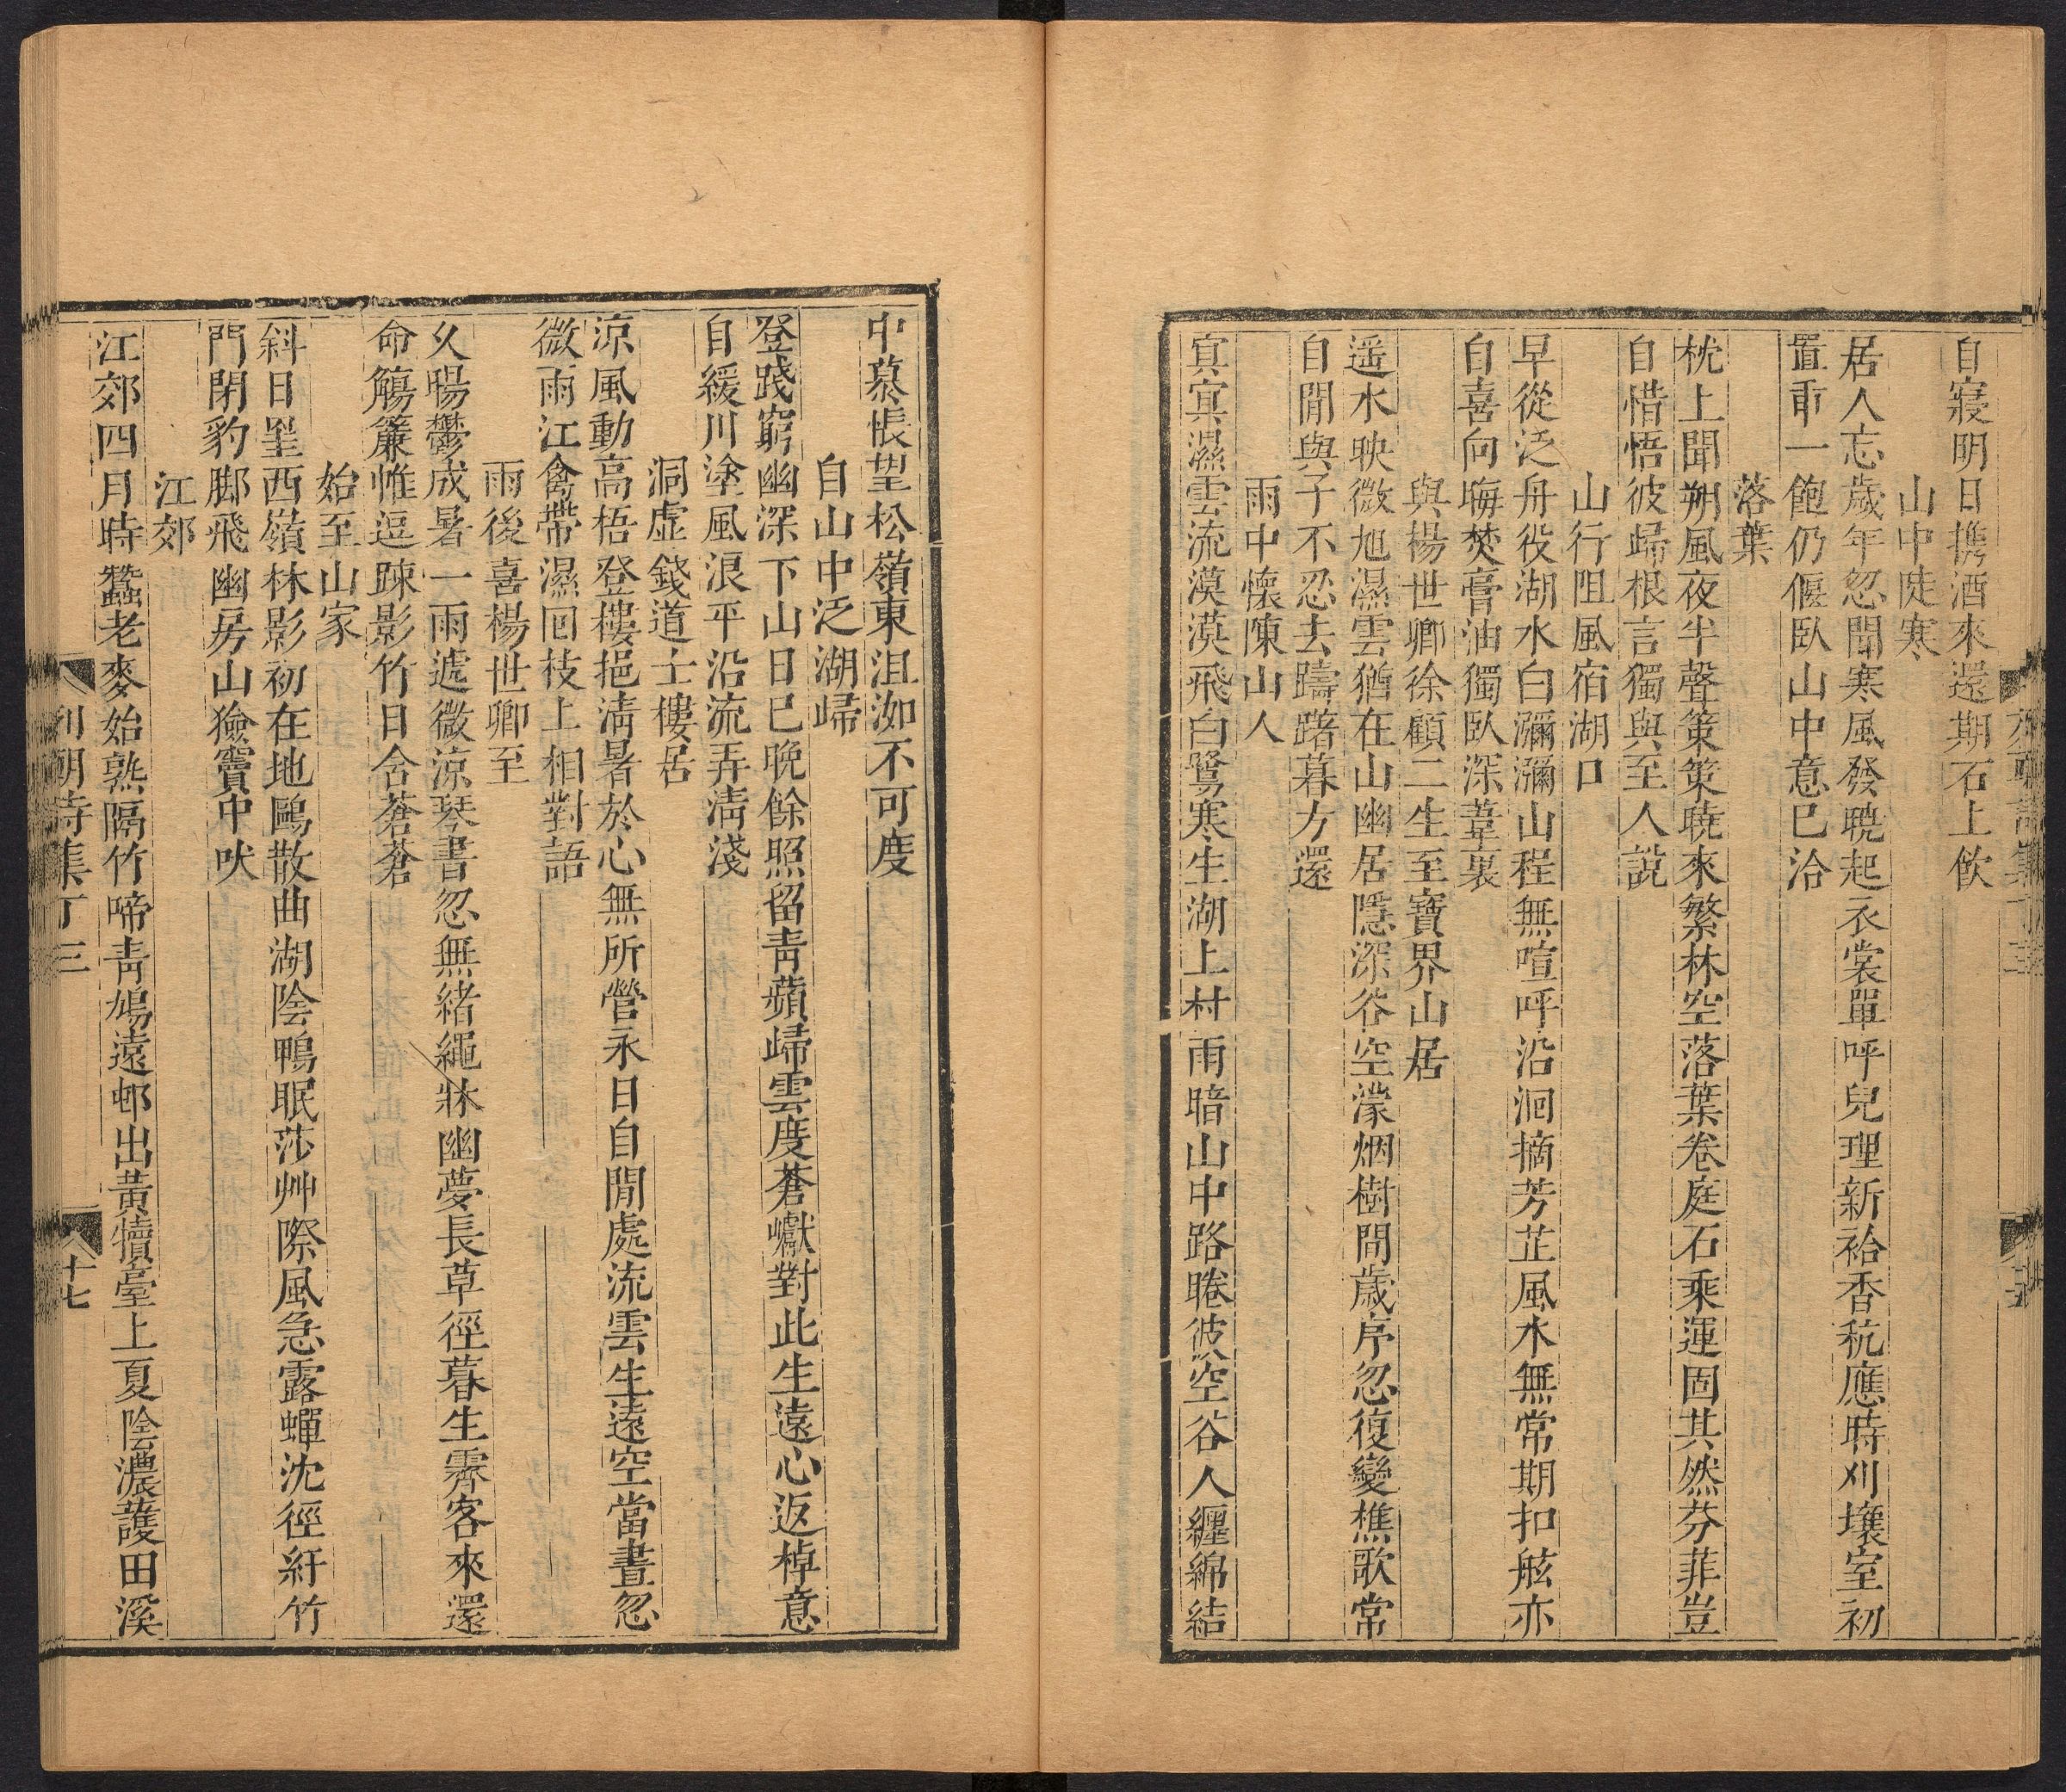 自寢明日攜酒來還期石上飲
山中陡寒
居人忘歲年忽聞寒風發曉起衣裳單呼兒理新袷香秔應時刈壤室初
置重一飽仍偃臥山中意已洽
落葉
枕上聞朔風夜半聲策策曉來繁林空落葉卷庭石乘運固其然芬菲豈
自惜悟彼歸根言獨與至人說
山行阻風宿湖口
早從泛舟役湖水白瀰瀰山程無喧呼沿洄摘芳芷風水無常期扣舷亦
自喜向晦焚膏油獨臥深葦裏
與楊世卿徐顧二生至寶界山居
遥水映微旭濕雲猶在山幽居隱深谷空濛烟樹間歲序忽復變樵歌常
自閒與子不忍去躊躇暮方還
雨中懷陳山人
寘寘濕雲流漠漠飛白鷺寒生湖上村雨暗山中路睠彼空谷人纏綿結
中慕悵望松嶺東沮洳不可度
自山中泛湖歸
登踐窮幽深下山日已晚餘照留靑蘋歸雲度蒼巘對此生遠心返棹意
自緩川塗風浪平沿流弄淸淺
洞虛錢道士樓居
涼風動高梧登樓挹淸暑於心無所營永日自閒處流雲生遠空當晝忽
微雨江禽帶濕回枝上相對語
雨後喜楊世卿至
久暘鬱成暑一雨遞微涼琴書忽無緒繩牀幽夢長草徑暮生霽客來還
命觴簾帷逗踈影竹日含蒼蒼
始至山家
斜日墨西嶺林影初在地鷗散曲湖陰鴨眠莎艸際風急露蟬沈徑紆竹
門閉豹脚飛幽房山獫竇中吠
江郊
江郊四月時蠶老麥始熟隔竹啼靑鳩遠邨出黃犢臺上夏陰濃護田溪
列朝詩集丁三
十七